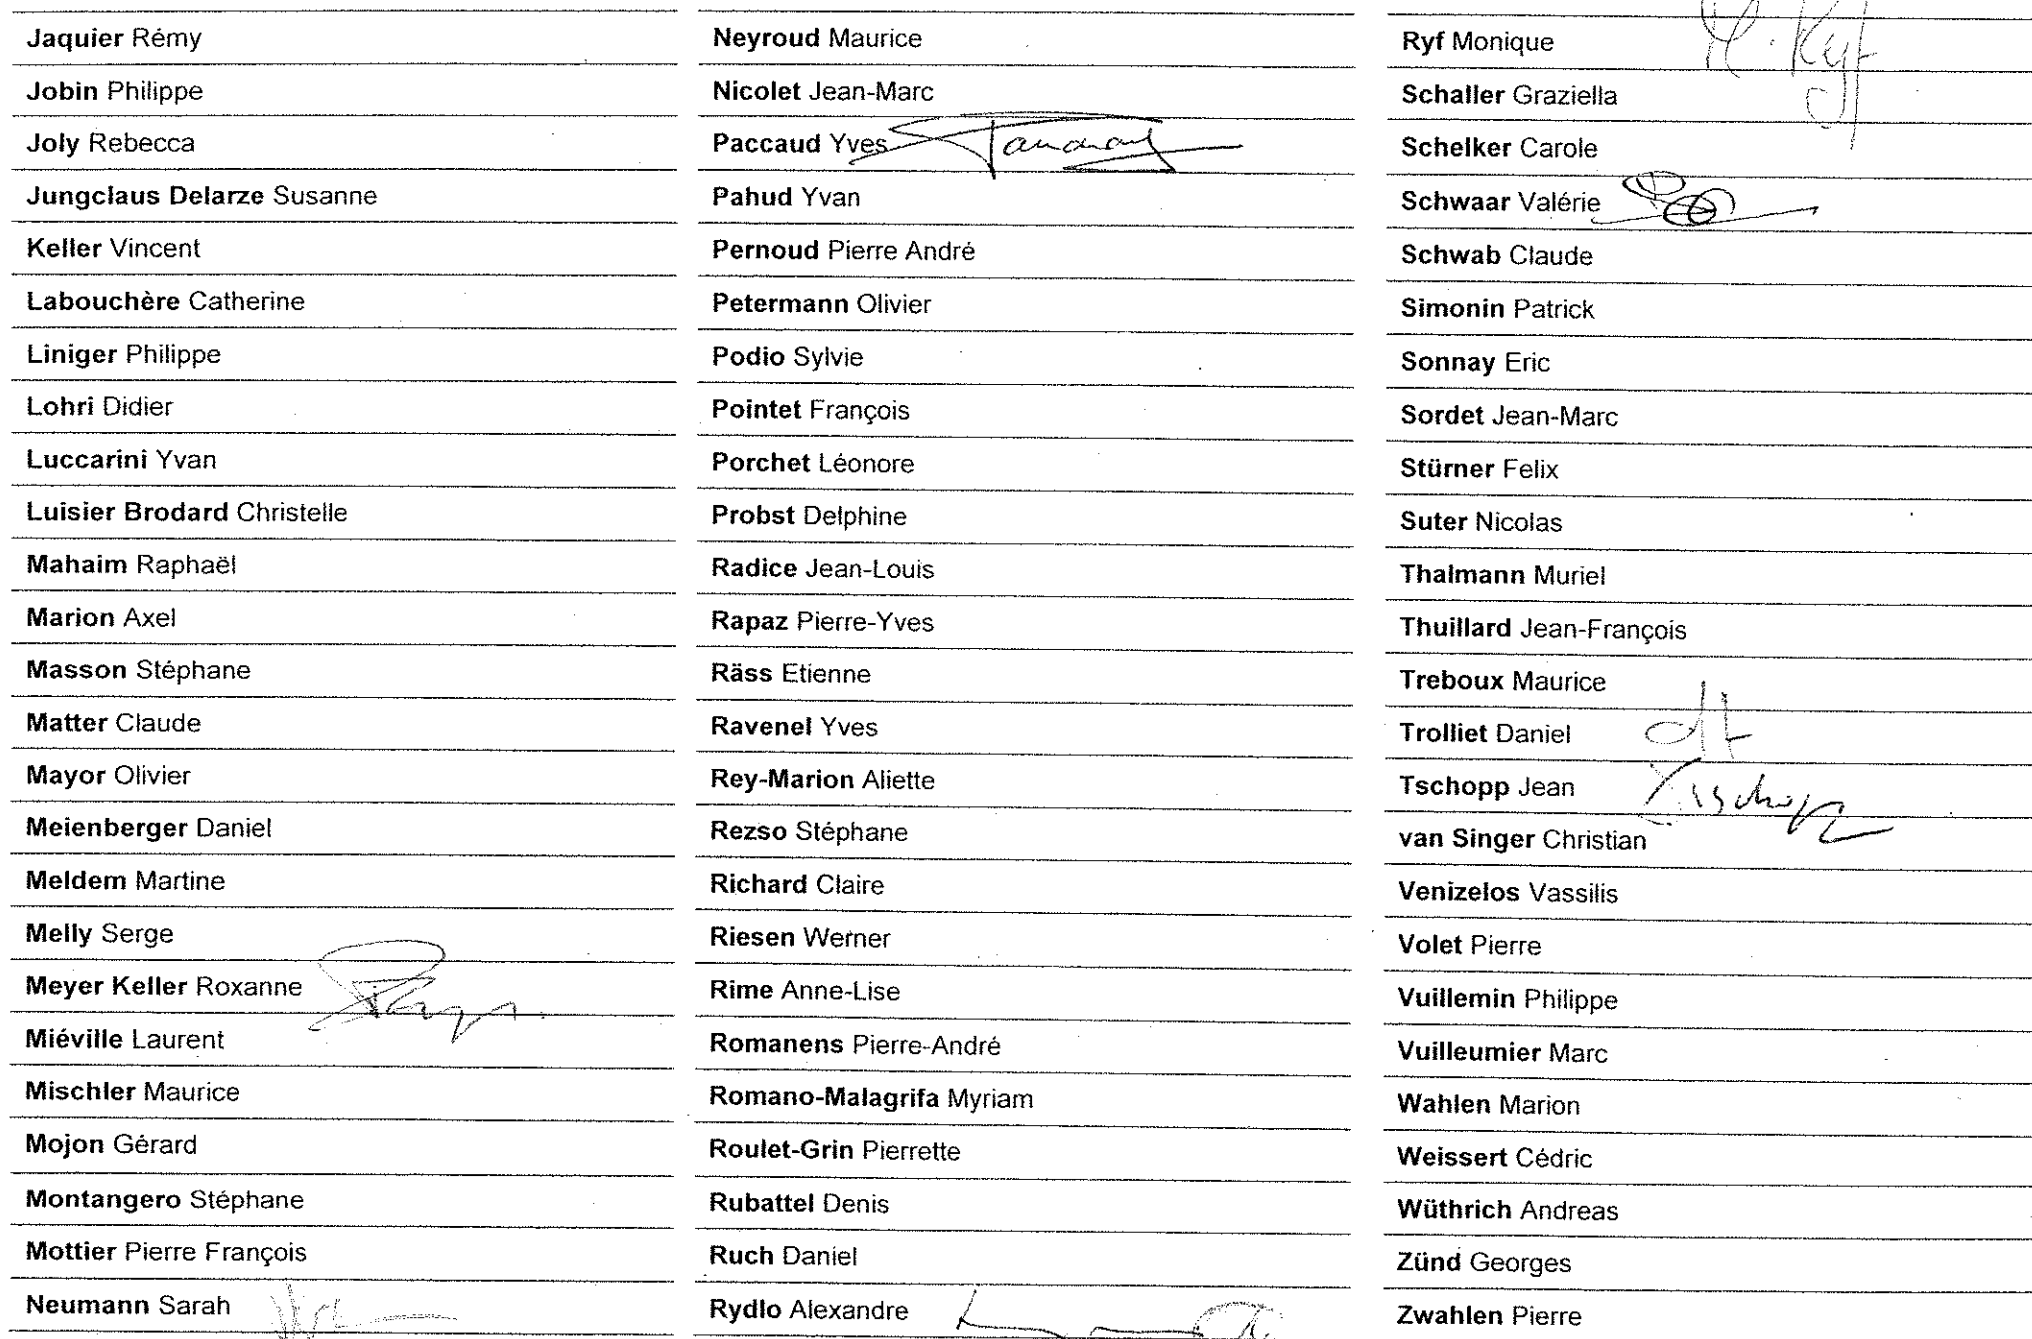 Jaquier Rémy
Jobin Philippe
Joly Rebecca
Jungclaus Delarze Susanne
Keller Vincent
Labouchère Catherine
Liniger Philippe
Lohri Didier
Luccarini Yvan
Luisier Brodard Christelle
Mahaim Raphaël
Marion Axel
Masson Stéphane
Matter Claude
Mayor Olivier
Meienberger Daniel
Meldem Martine
Melly Serge
Meyer Keller Roxanne
Miéville Laurent
Mischler Maurice
Mojon Gérard
Montangero Stéphane
Mottier Pierre François
Neumann Sarah
Neyroud Maurice
Nicolet Jean-Marc
Paccaud Yves
Pahud Yvan
Pernoud Pierre André
Petermann Olivier
Podio Sylvie
Pointet François
Porchet Léonore
Probst Delphine
Radice Jean-Louis
Rapaz Pierre-Yves
Räss Etienne
Ravenel Yves
Rey-Marion Aliette
Rezso Stéphane
Richard Claire
Riesen Werner
Rime Anne-Lise
Romanens Pierre-André
Romano-Malagrifa Myriam
Roulet-Grin Pierrette
Rubattel Denis
Ruch Daniel
Rydlo Alexandre
Ryf Monique M. Ryf
Schaller Graziella
Schelker Carole
Schwaar Valérie
Schwab Claude
Simonin Patrick
Sonnay Eric
Sordet Jean-Marc
Stürner Felix
Suter Nicolas
Thalmann Muriel
Thuillard Jean-François
Treboux Maurice
Trolliet Daniel
Tschopp Jean Tschopp
van Singer Christian
Venizelos Vassilis
Volet Pierre
Vuillemin Philippe
Vuilleumier Marc
Wahlen Marion
Weissert Cédric
Wüthrich Andreas
Zünd Georges
Zwahlen Pierre